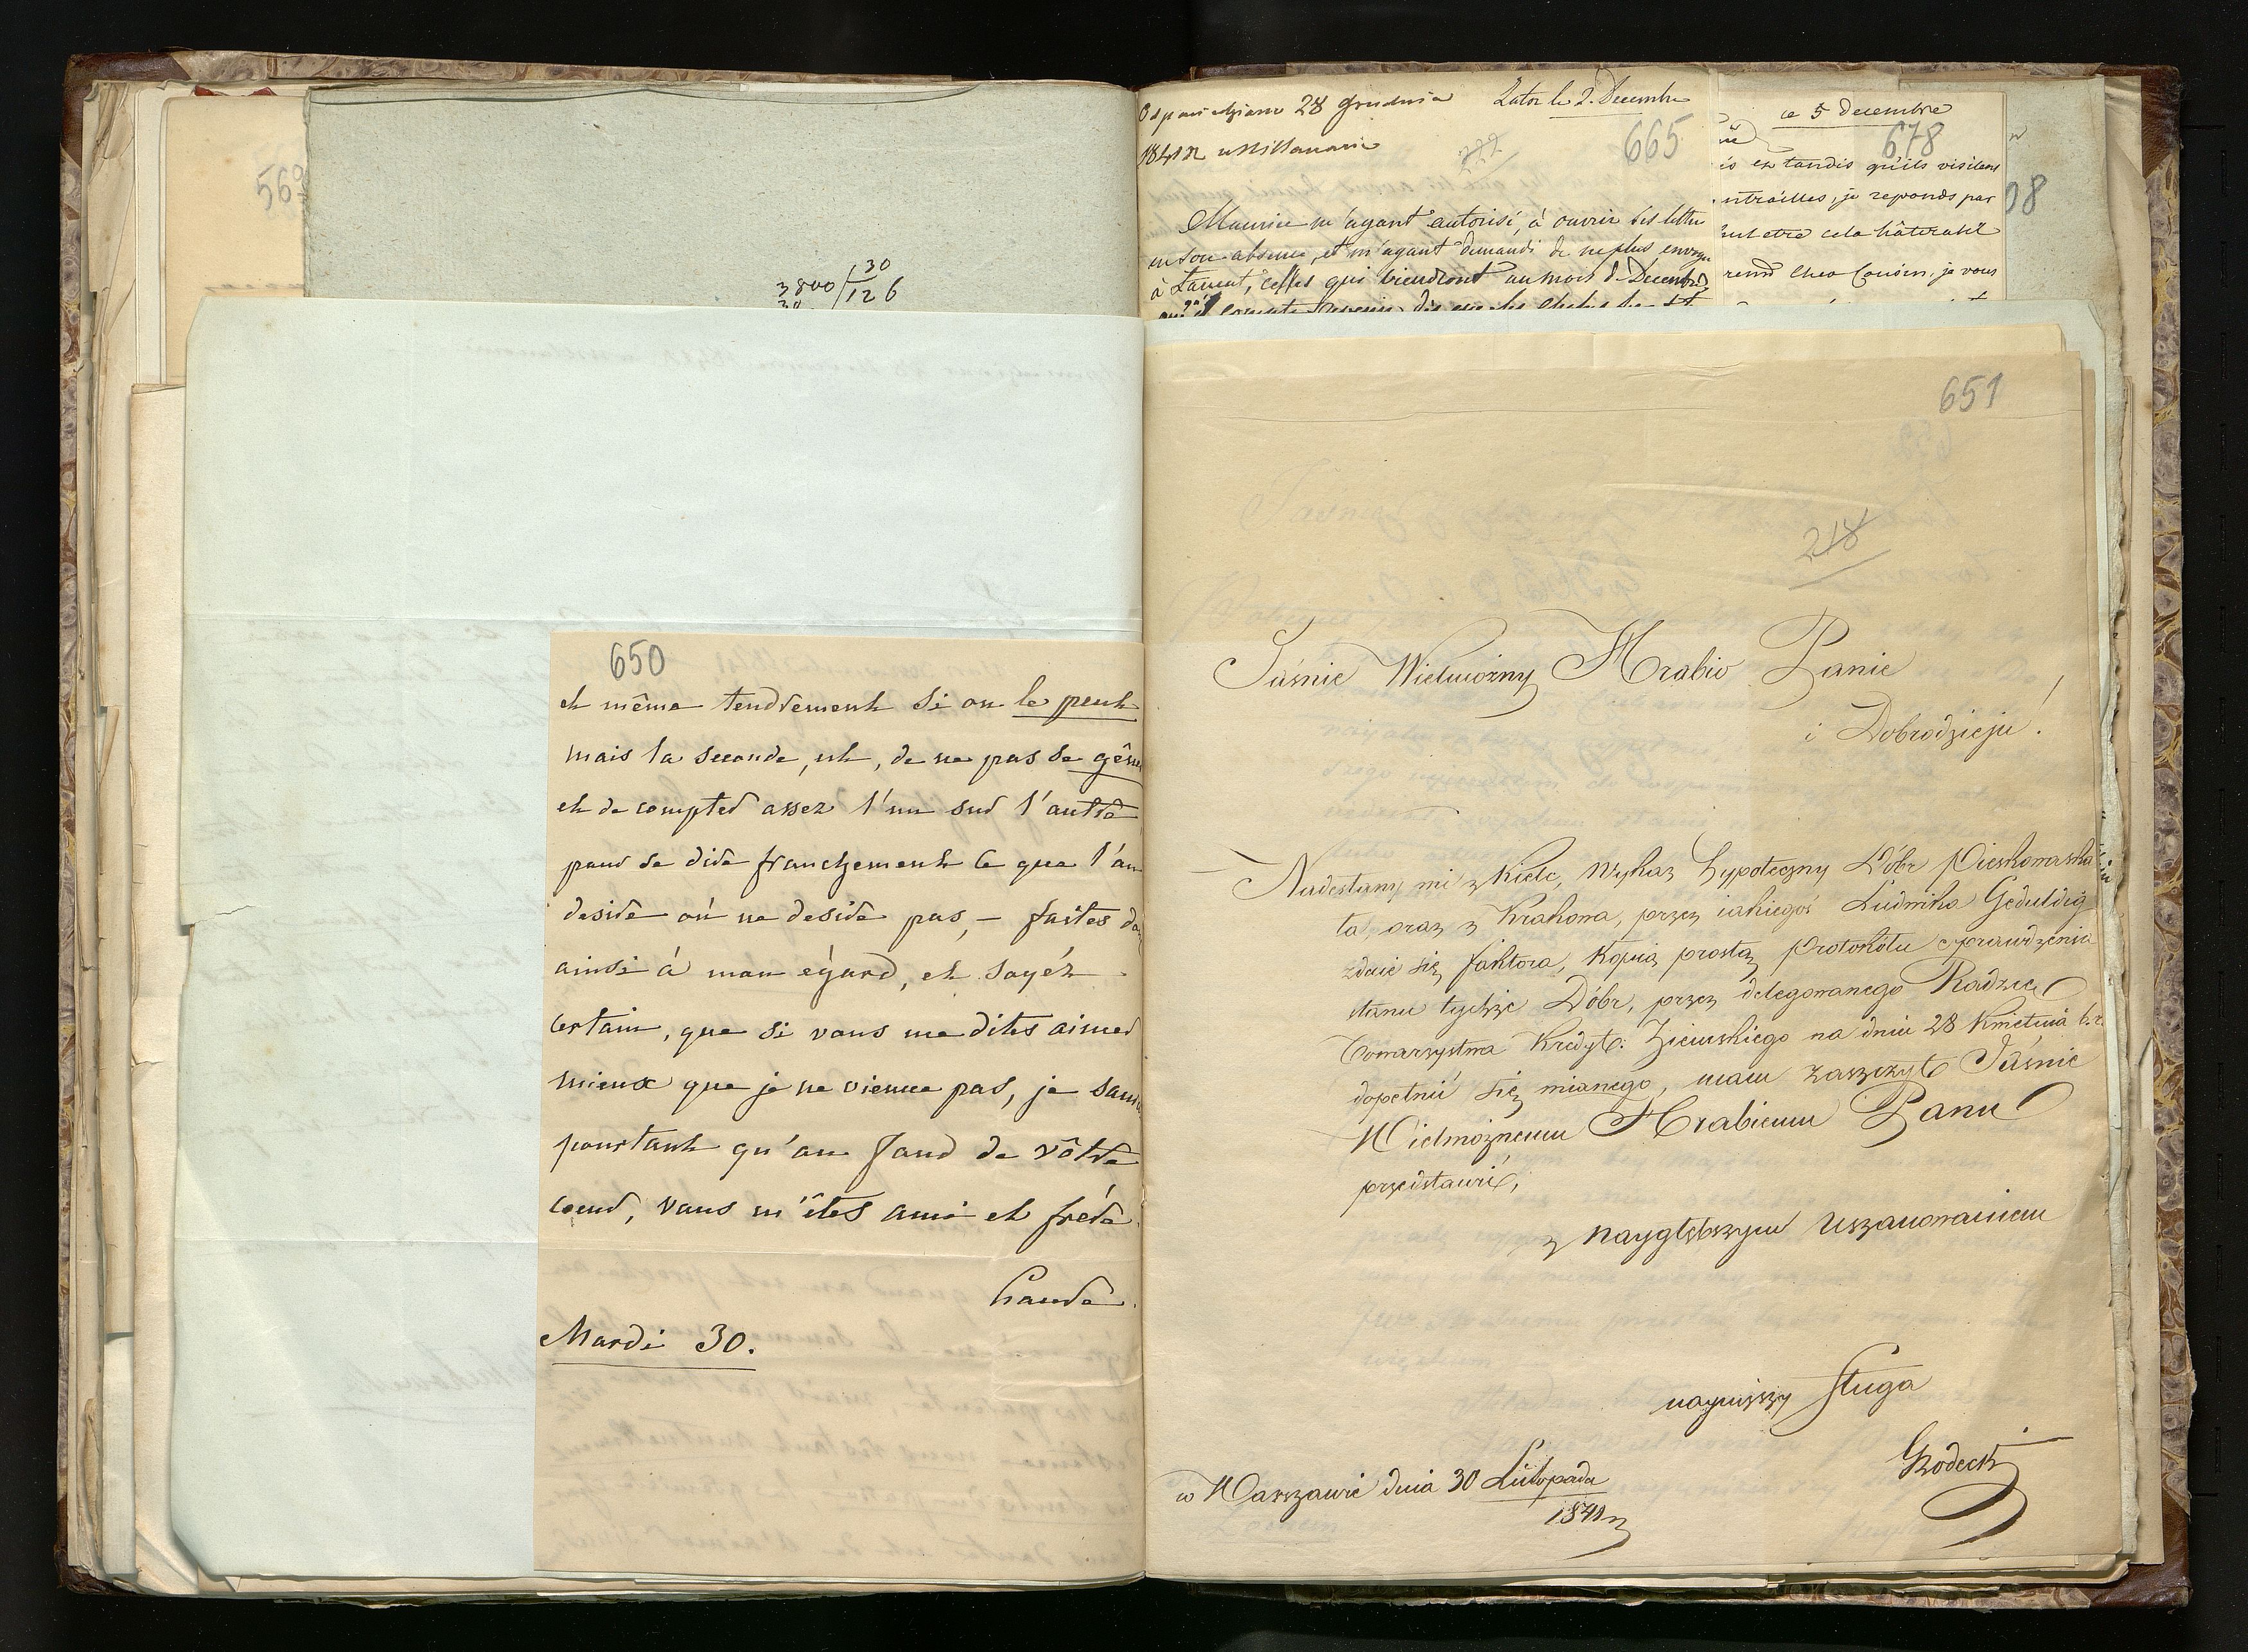 569
3800 / 30
126
Odpowiedziano 28 Grudnia
1841 R
Zator le 2. Decembre
665
Maurice m'ayant autorisé, à ouvrir ses lettres
en son absence, et m'ayant demandé de ne plus envoyer
à Laurent, celles qui viendront au mois de Decembre
ce 5 decembre
678
et tandis qu'ils visitent
entrailles, je reponds par
peut etre cela hâtera
cher Cousin, je vous
98
650
et même tendrement si on le peut
mais la seconde, est, de ne pas se gêner
et de compter assez l'un sur l'autre
pour se dire franchement ce que l'on
desire où ne desire pas, – faites
ainsi à mon égard, et soyéz
certain, que si vous me dites aimer
mieux que je ne vienne pas, je saurai
pourtant qu'au fond de vôtre
coeur, vous m'êtes ami et frére
Mardi 30.
651
218
Jaśnie Wielmożny Hrabio Panie
i Dobrodzieju!
Nadesłany mi z Kielc, Wykaz hypoteczny Dóbr Pieskowaska
ła, oraz z Krakowa, przez iakiegoś Ludwika Geduldig
zdaie się faktora, kopią prostą protokółu sprawdzenia
stanu tychże Dóbr, przez delegowanego Radzcę
Towarzystwa Kredyt: Ziemskiego na dniu 28 Kwietnia b.r.
dopełnić się mianego, mam zaszczyt Jaśnie
Wielmożnemu Hrabiemu Panu
przedstawić,
z naygłębszym uszanowaniem
nayniższy sługa
Grodecki
w Warszawie dnia 30 Listopada
1841 r